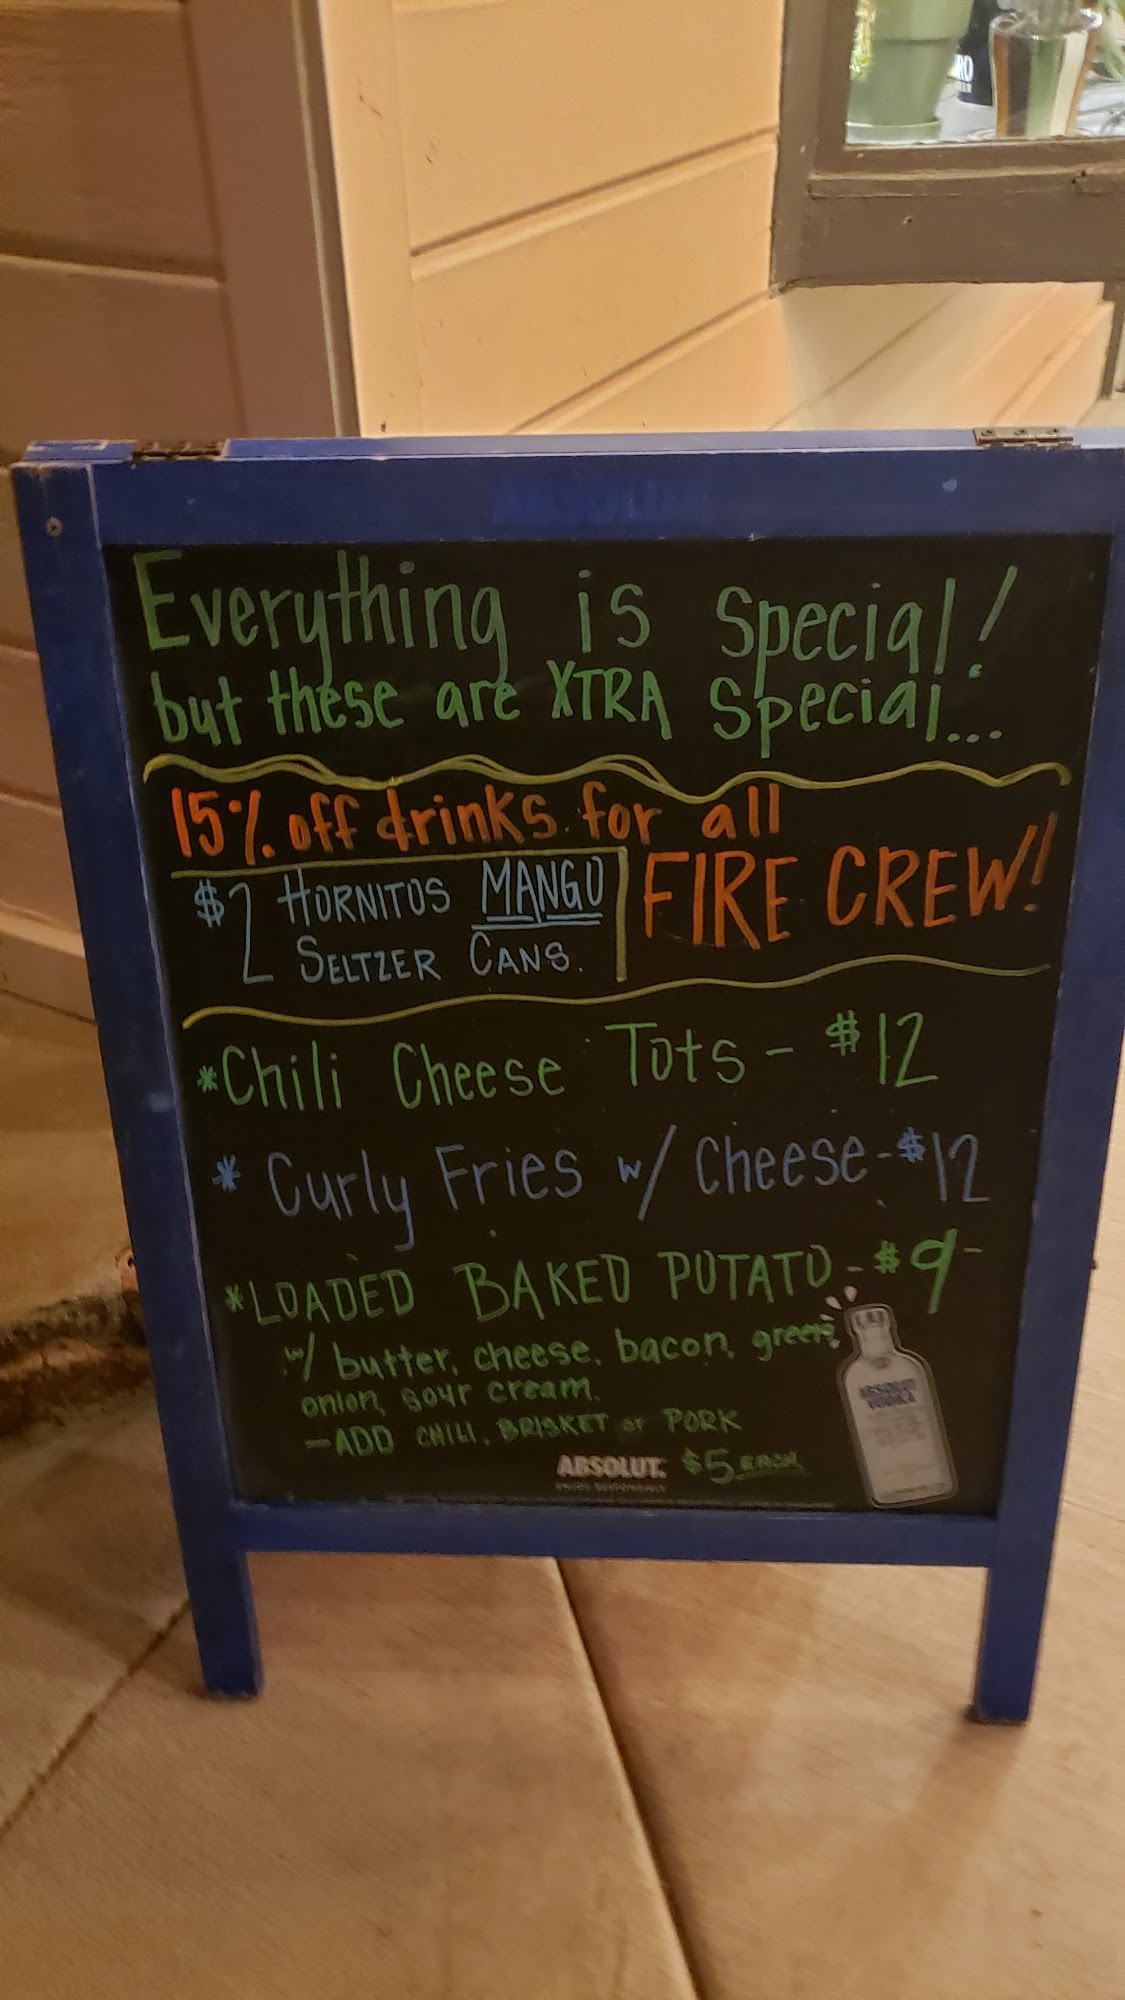 RO
ABSOLUT
Everything is special!
but these are XTRA special...
15% off drinks for all
FIRE CREW!!
$2 HORNITOS MANGO
SELTZER CANS.
*Chili Cheese Tots - $12
* Curly Fries w/ Cheese - $12
*LOADED BAKED POTATO - $9-
w/ butter, cheese, bacon, green,
onion, sour cream.
- ADD CHILI, BRISKET or PORK
$5 EACH
ABSOLUT.
ABSOLUT
VODKA